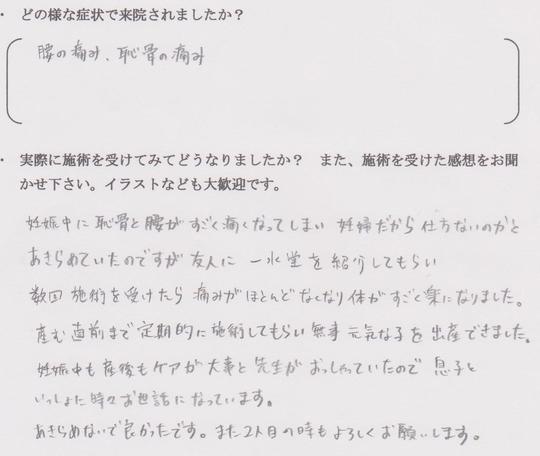 ・ どの様な症状で来院されましたか？
腰の痛み、恥骨の痛み
・ 実際に施術を受けてみてどうなりましたか？　また、施術を受けた感想をお聞
かせ下さい。イラストなども大歓迎です。
妊娠中に恥骨と腰がすごく痛くなってしまい 妊婦だから仕方ないのかと
あきらめていたのですが友人に 一水堂を紹介してもらい
数回施術を受けたら痛みがほとんどなくなり体がすごく楽になりました。
産む直前まで定期的に施術してもらい無事 元気な子を出産できました。
妊娠中も産後もケアが大事と先生がおっしゃっていたので 息子と
いっしょに時々お世話になっています。
あきらめないで良かったです。また2人目の時もよろしくお願いします。